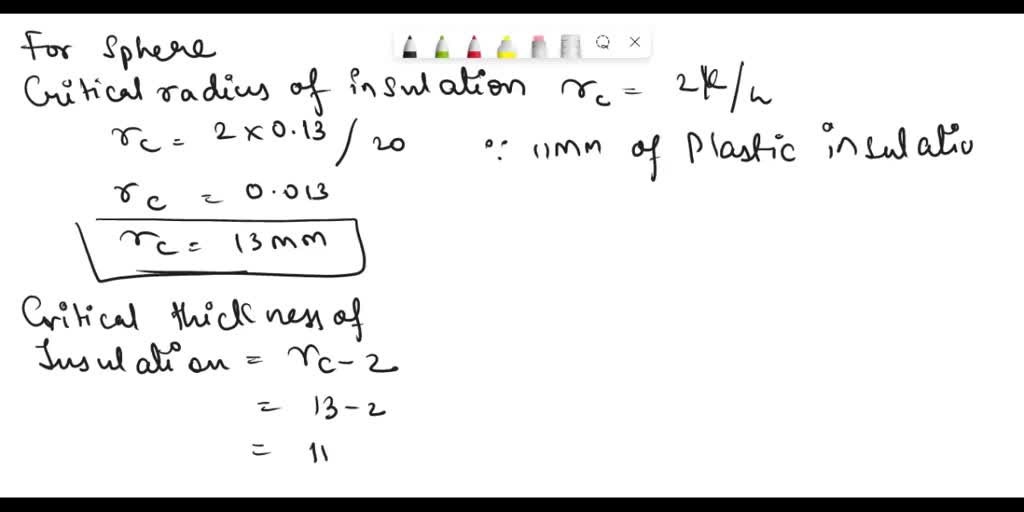 For Sphere
Critical radius of insulation rc = 2K/h
rc = 2 × 0.13 / 20 ∵ 11mm of Plastic insulatio
rc = 0.013
rc = 13mm
Critical thickness of
Insulation = rc - 2
= 13 - 2
= 11